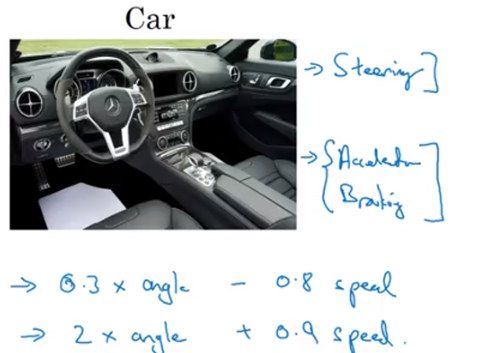 Car
→ Steering ]
→ { Acceleration
Braking ]
→ 0.3 x angle - 0.8 speed
→ 2 x angle + 0.9 speed.